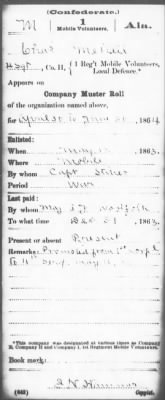 (Confederate.)
M 1 Ala.
Mobile Volunteers,
Chas
Sgt, Co. H, 1 Reg't Mobile Volunteers,
Local Defence.*
Appears on
Company Muster Roll
of the organization named above,
for April 30 to June 30, 1864
Enlisted:
When May 1863.
Where Mobile
By whom Capt
Period War
Last paid:
By whom Maj
To what time Dec 31, 1863.
Present or absent Present
Remarks: Promoted from 1st Corpl
to 4th Sergt May
*This company was designated at various times as Company
B, Company H and Company I, 1st Regiment Mobile Volunteers.
Book mark:
(642) Copyist.